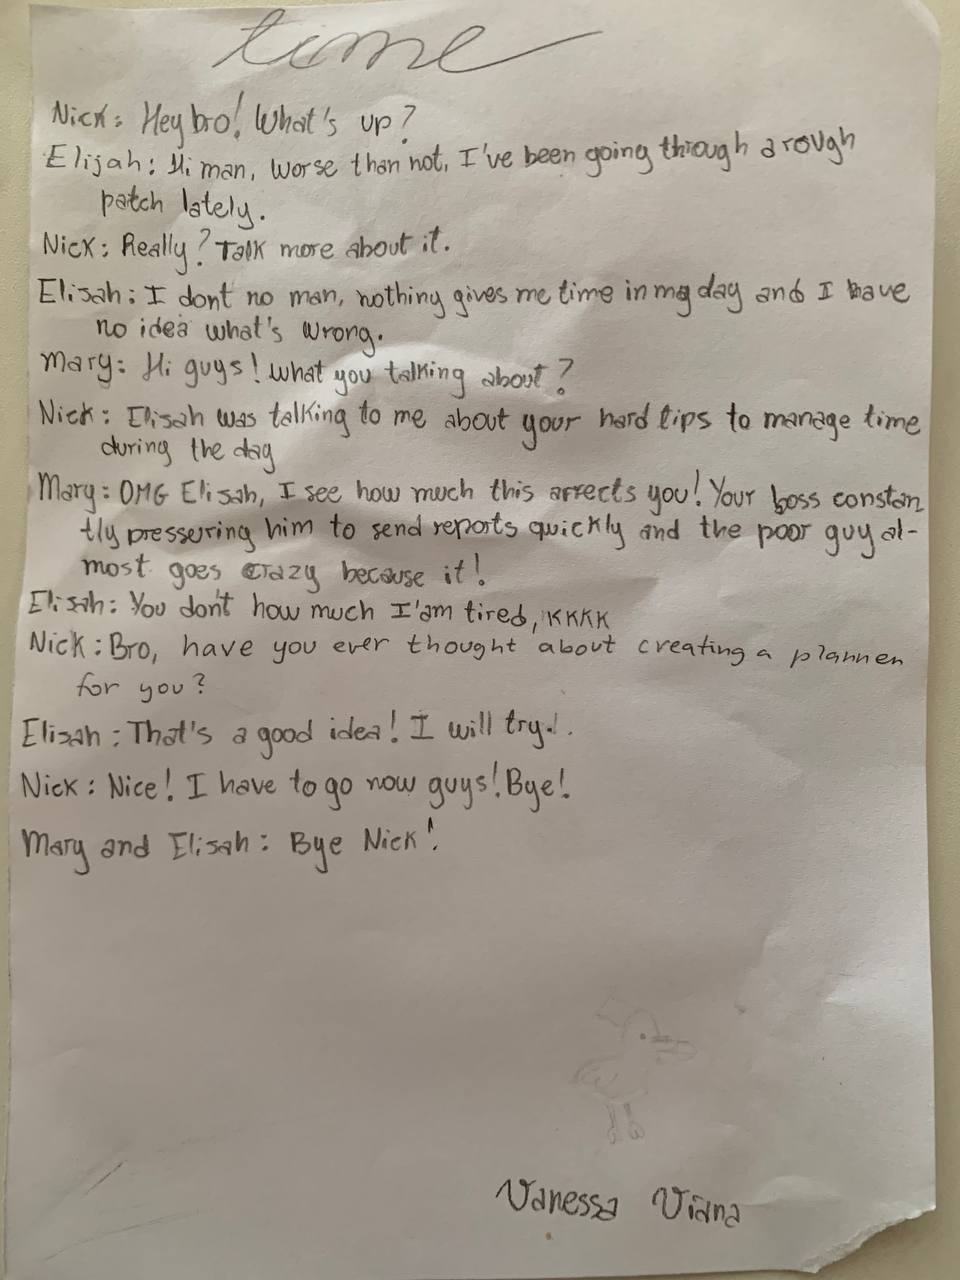 time
Nick: Hey bro! What's up?
Elijah: Hi man, worse than not, I've been going through a rough
patch lately.
Nick: Really? Talk more about it.
Elisah: I dont no man, nothing gives me time in my day and I have
no idea what's wrong.
Mary: Hi guys! what you talking about?
Nick: Elisah was talking to me about your hard tips to manage time
during the day
Mary: OMG Elisah, I see how much this affects you! Your boss constan
tly pressering him to send reports quickly and the poor guy al-
most goes crazy because it!
Elisah: You don't how much I'am tired, KKKK
Nick: Bro, have you ever thought about creating a planner
for you?
Elisah: That's a good idea! I will try.
Nick: Nice! I have to go now guys! Bye!
Mary and Elisah: Bye Nick!
Vanessa Viana